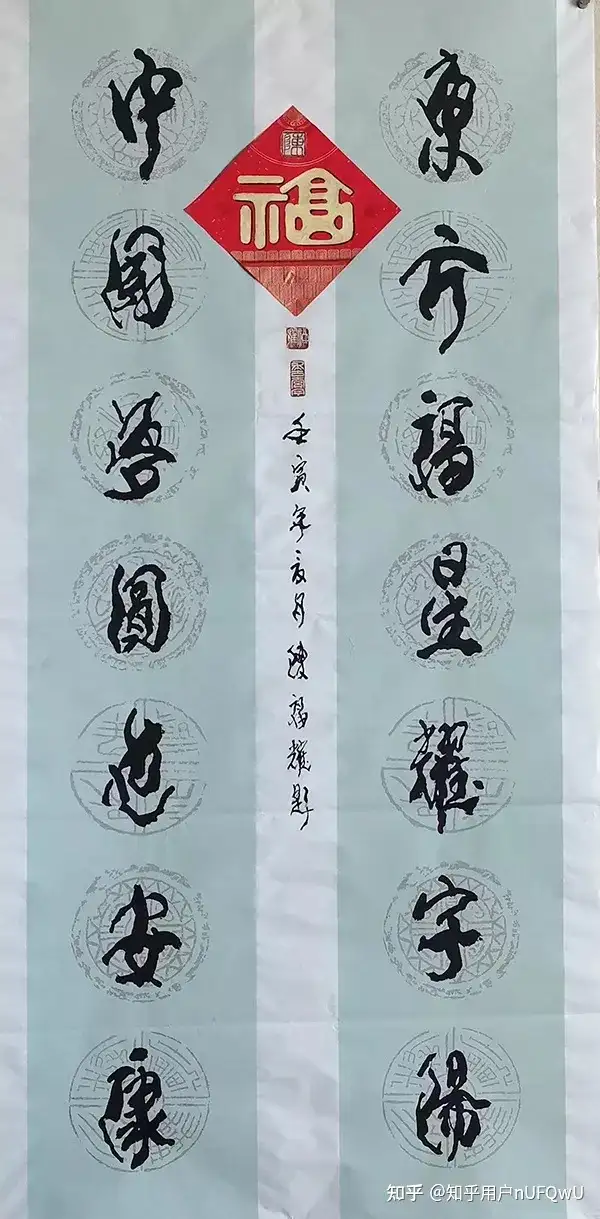 東方福星耀宇陽
福
壬寅年亥月陳福耀題
中國夢圓安康
知乎 @知乎用户nUFQwU